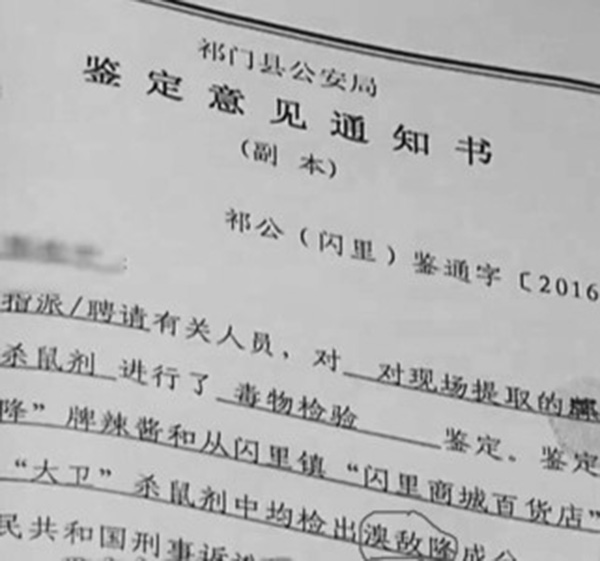 祁门县公安局
鉴定意见通知书
(副 本)
祁公(闪里)鉴通字〔2016
:
指派/聘请有关人员,对 对现场提取的
杀鼠剂 进行了 毒物检验 鉴定。鉴定
隆”牌辣酱和从闪里镇“闪里商城百货店”
“大卫”杀鼠剂中均检出溴敌隆成分
民共和国刑事诉讼